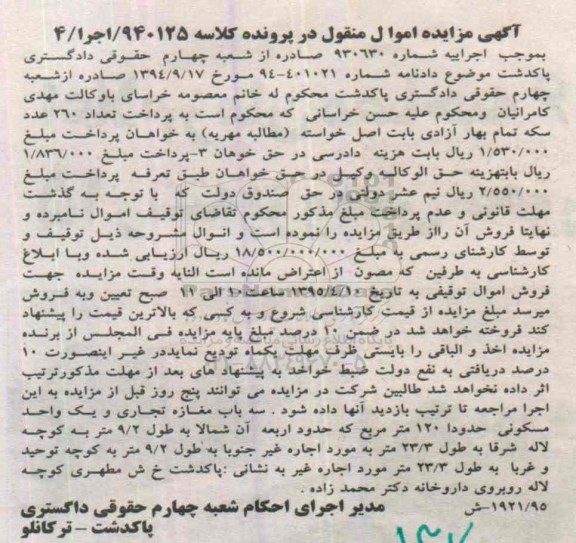 آگهی مزایده اموال منقول در پرونده کلاسه ۹۴۰۱۲۵/اجرا/۴
بموجب اجراییه شماره ۹۳۰۶۳۰ صادره از شعبه چهارم حقوقی دادگستری
پاکدشت موضوع دادنامه شماره ۴۰۱۰۲۱-۹۴ مورخ ۱۳۹۴/۹/۱۷ صادره ازشعبه
چهارم حقوقی دادگستری پاکدشت محکوم له خانم معصومه خراسای باوکالت مهدی
کامرانیان ومحکوم علیه حسن خراسانی که محکوم است به پرداخت تعداد ۲۶۰ عدد
سکه تمام بهار آزادی بابت اصل خواسته (مطالبه مهریه) به خواهسان پرداخت مبلغ
۱/۵۳۰/۰۰۰ ریال بابت هزینه دادرسی در حق خوهان ۳-پرداخت مبلغ ۱/۸۳۶/۰۰۰
ریال بابتهزینه حق الوکالسه وکیسل در حق خواهان طبق تعرفه پرداخت مبلغ
۲/۵۵۰/۰۰۰ ریال نیم عشر دولتی در حق صندوق دولت که با توجه به گذشت
مهلت قانونی و عدم پرداخت مبلغ مذکور محکوم تقاضای توقیف اموال نامبرده و
نهایتا فروش آن رااز طریق مزایده را نموده است و انوال مشروحه ذیل توقیف و
توسط کارشنای رسمی به مبلغ ۱۸/۵۰۰/۰۰۰/۰۰۰ ریال ارزیابی شده وبا ابلاغ
کارشناسی به طرفین که مصون از اعتراض مانده است النایه وقت مزایده جهت
فروش اموال توقیفی به تاریخ ۱۳۹۵/۴/۱۰ ساعت ۱۰ الی ۱۱ صبح تعیین وبه فروش
میرسد مبلغ مزایده از قیمت کارشناسی شروع و به کسی که بالاترین قیمت را پیشنهاد
کند فروخته خواهد شد در ضمن ۱۰ درصد مبلغ پایه مزایده فی المجلس از برنده
مزایده اخذ و الباقی را بایستی ظرف مهلت یکماه تودیع نمایددر غیر اینصورت ۱۰
درصد دریافتی به نفع دولت ضبط خواخد به پیشنهاد های بعد از مهلت مذکورترتیب
اثر داده نخواهد شد طالبین شرکت در مزایده می توانند پنج روز قبل از مزایده به این
اجرا مراجعه تا ترتیب بازدید آنها داده شود . سه باب مغازه تجاری و یک واحد
مسکونی حدودا ۱۲۰ متر مربع که حدود اربعه آن شمالا به طول ۹/۲ متر به کوچه
لاله شرقا به طول ۲۳/۳ متر به مورد اجاره غیر جنوبا به طول ۹/۲ متر به کوچه توحید
و غربا به طول ۲۳/۳ متر مورد اجاره غیر به نشانی :پاکدشت خ ش مطهری کوچه
لاله روبروی داروخانه دکتر محمد زاده .
۱۹۲۱/۹۵-ش مدیر اجرای احکام شعبه چهارم حقوقی داگستری
پاکدشت – ترکانلو